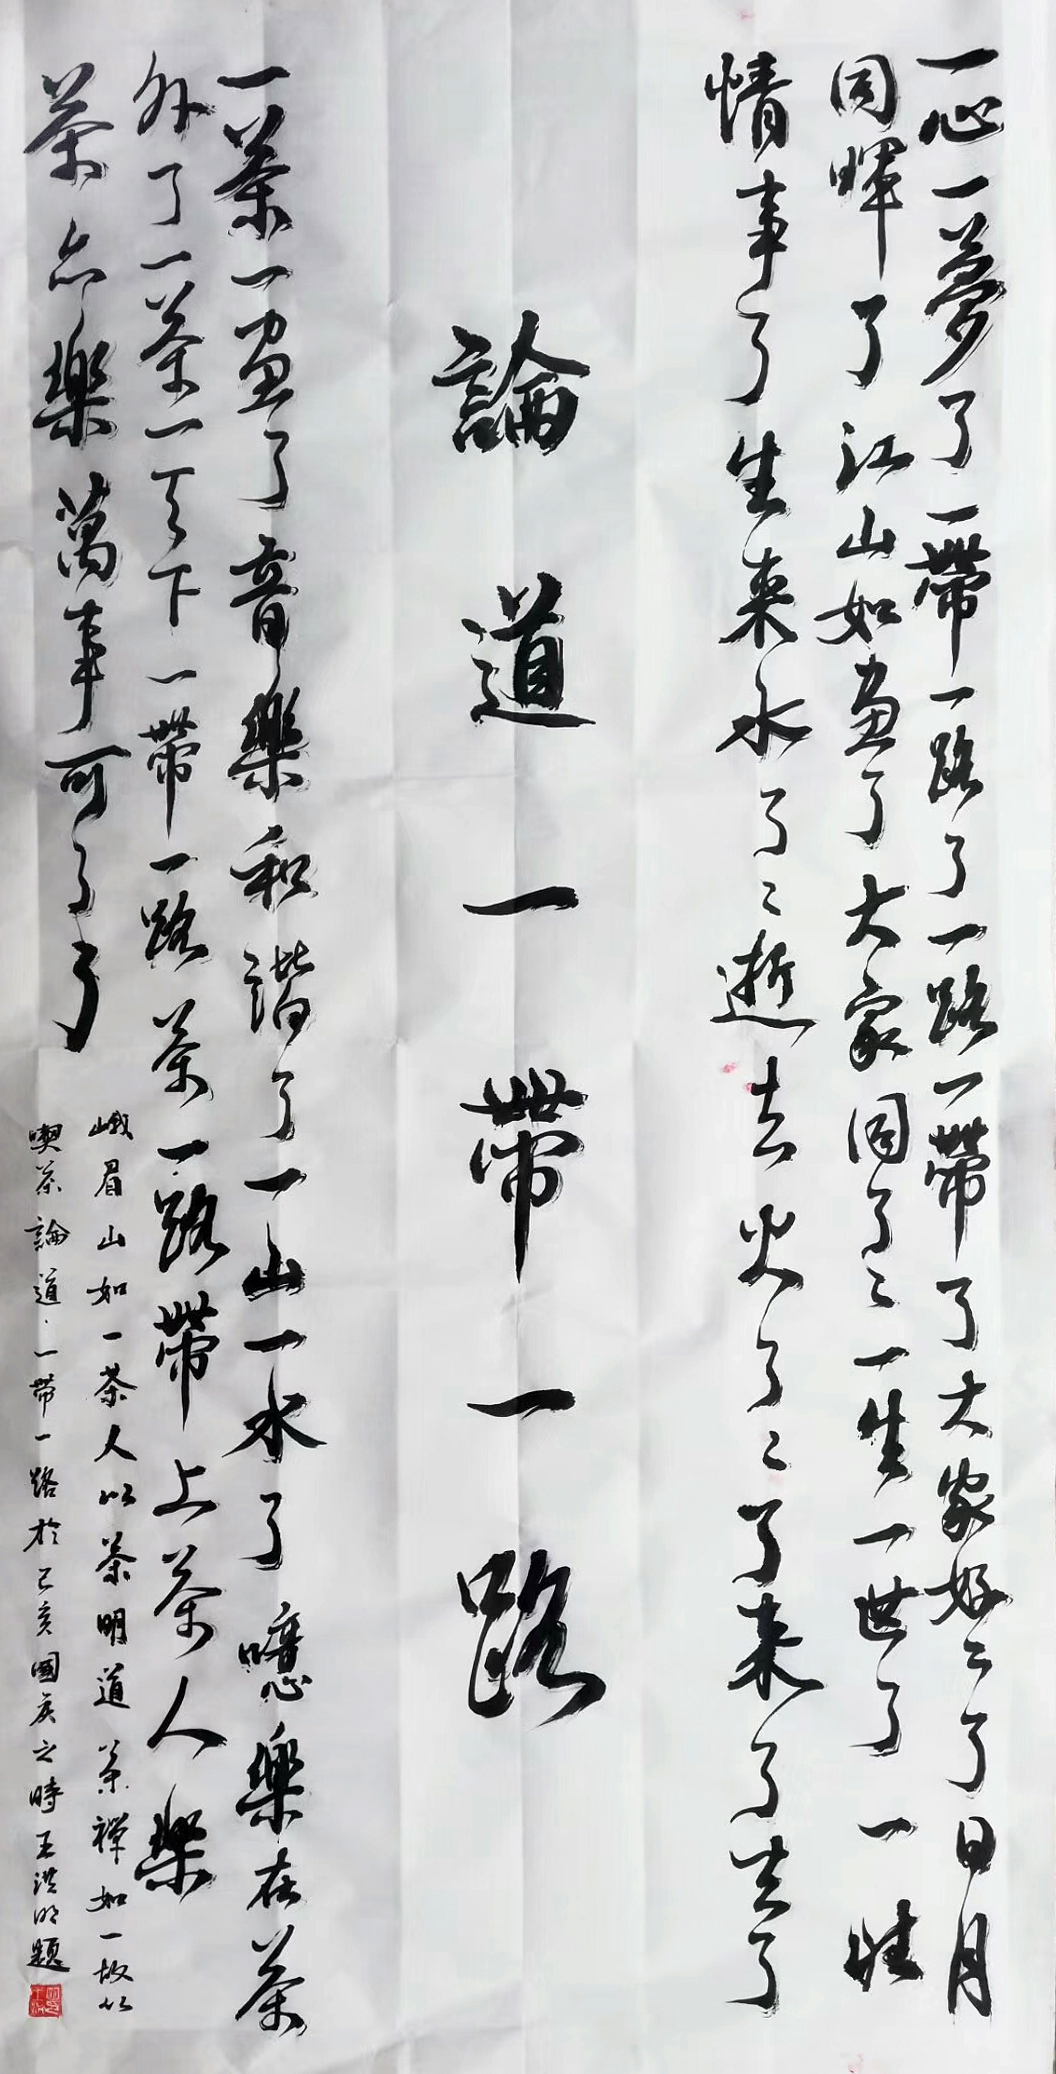 一心一夢了一帶一路了一路一帶了大家好〻了日月
同暉了江山如畫了大家同了〻一生一世了一性
情事了生來水了〻逝去火了〻了来了去了
論道一帶一路
一茶一畫了音樂和諧了一山一水了噫樂在茶
外了一茶一天下一帶一路茶一路帶上茶人樂
茶亦樂萬事可了了
峨眉山如一茶人以茶明道茶禪如一故以
喫茶論道·一帶一路於己亥國慶之時王洪明題